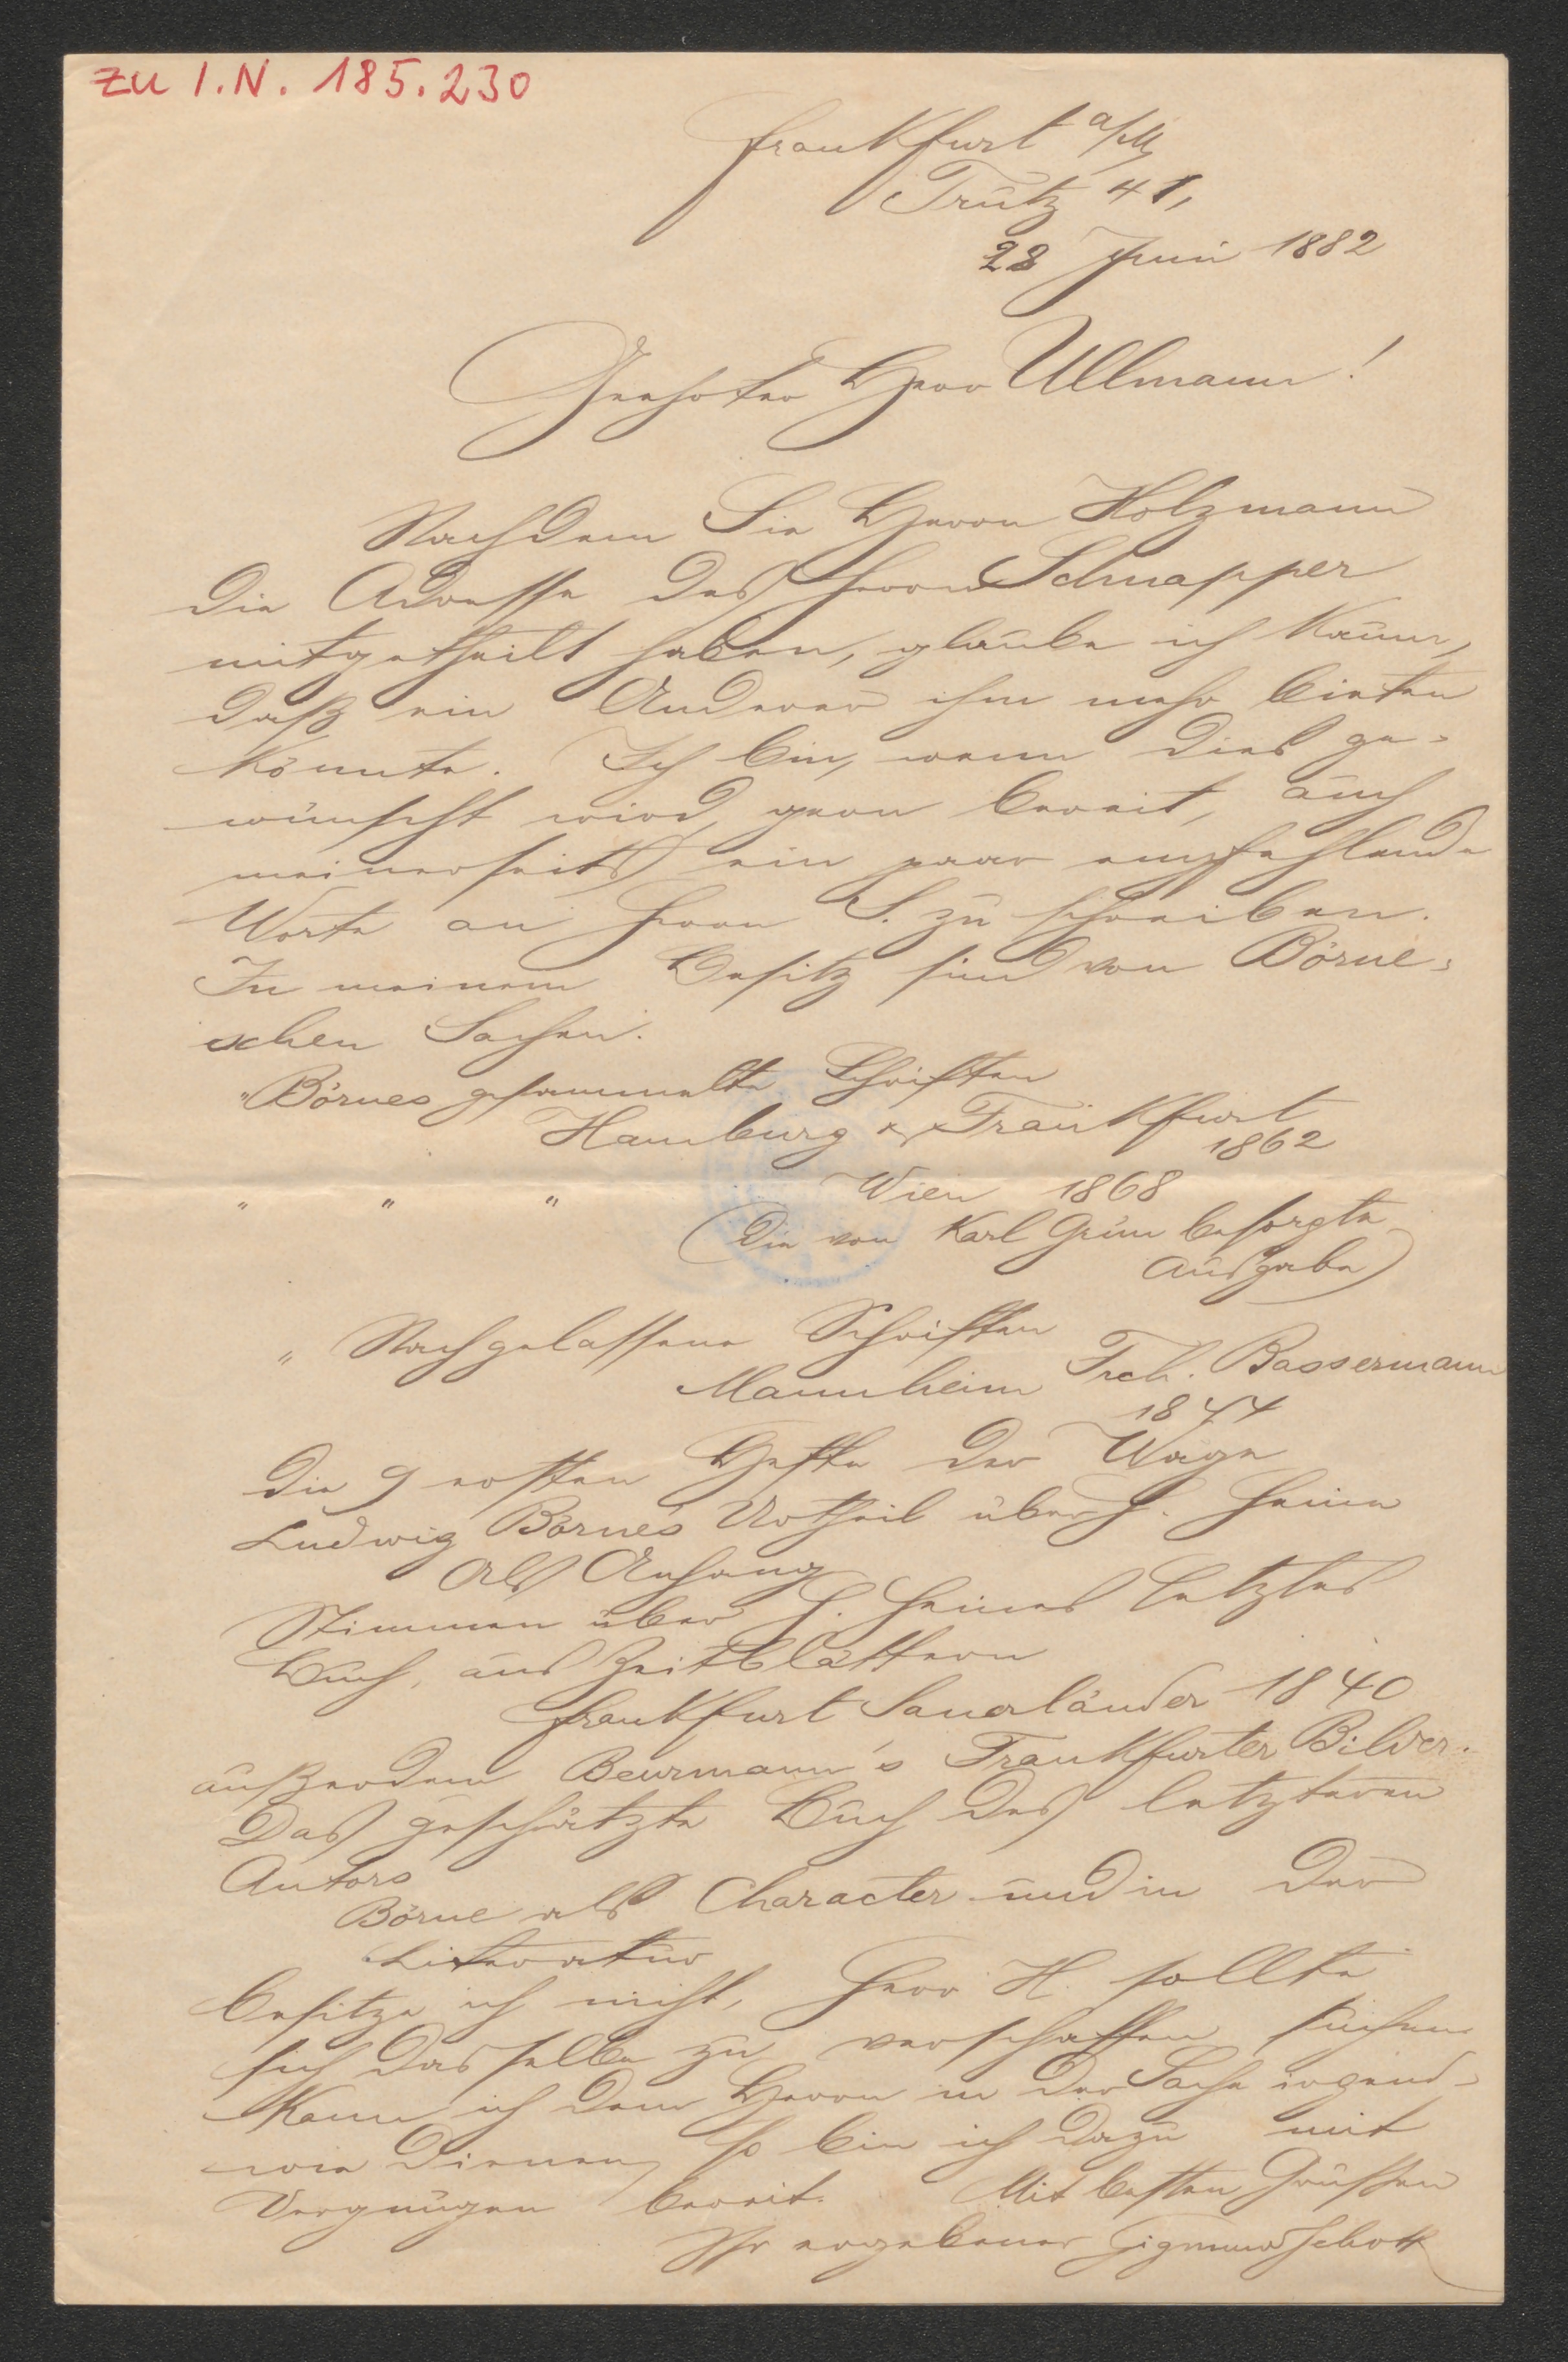 zu I.N. 185.230
Frankfurt a/M
Trutz 41,
28 Juni 1882
Geehrter Herr Ullmann!
Nachdem Sie Herrn Holzmann
die Adresse des Herrn Schnapper
mitgetheilt haben, glaube ich kaum,
daß ein Anderer ihm mehr bieten
könnte. Ich bin, wenn dies ge-
wünscht wird, gern bereit, auch
meinerseits ein paar empfehlende
Worte an Herrn S. zu schreiben.
In meinem Besitz sind von Börne-
schen Sachen:
"Börnes gesammelte Schriften
Hamburg & Frankfurt
1862
" " " Wien 1868
(Die von Karl Grün besorgte
Ausgabe)
" Nachgelassene Schriften
Mannheim Frdr. Bassermann
1844
Die 9 ersten Hefte der Wage
Ludwig Börne's Urtheil über H. Heine
Als Anhang
Stimmen über H. Heines letztes
Buch, aus Zeitblättern
Frankfurt Sauerländer 1840
außerdem Beurmann's Frankfurter Bilder.
Das geschätzte Buch des letzteren
Autors
Börne als Character und in der
Literatur
besitze ich nicht, Herr H. sollte
sich dasselbe zu verschaffen suchen.
Kann ich dem Herrn in der Sache irgend-
wie dienen, so bin ich dazu mit
Vergnügen bereit. Mit besten Grüßen
Ihr ergebener Sigmund Schott